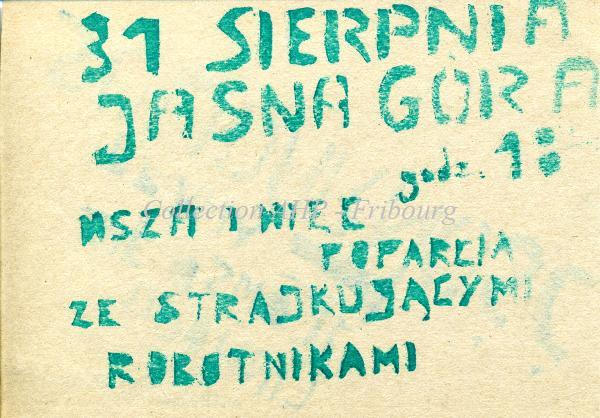 31 SIERPNIA
JASNA GÓRA
godz. 18
MSZA I WIEC
Collection AHP - Fribourg
POPARCIA
ZE STRAJKUJĄCYMI
ROBOTNIKAMI